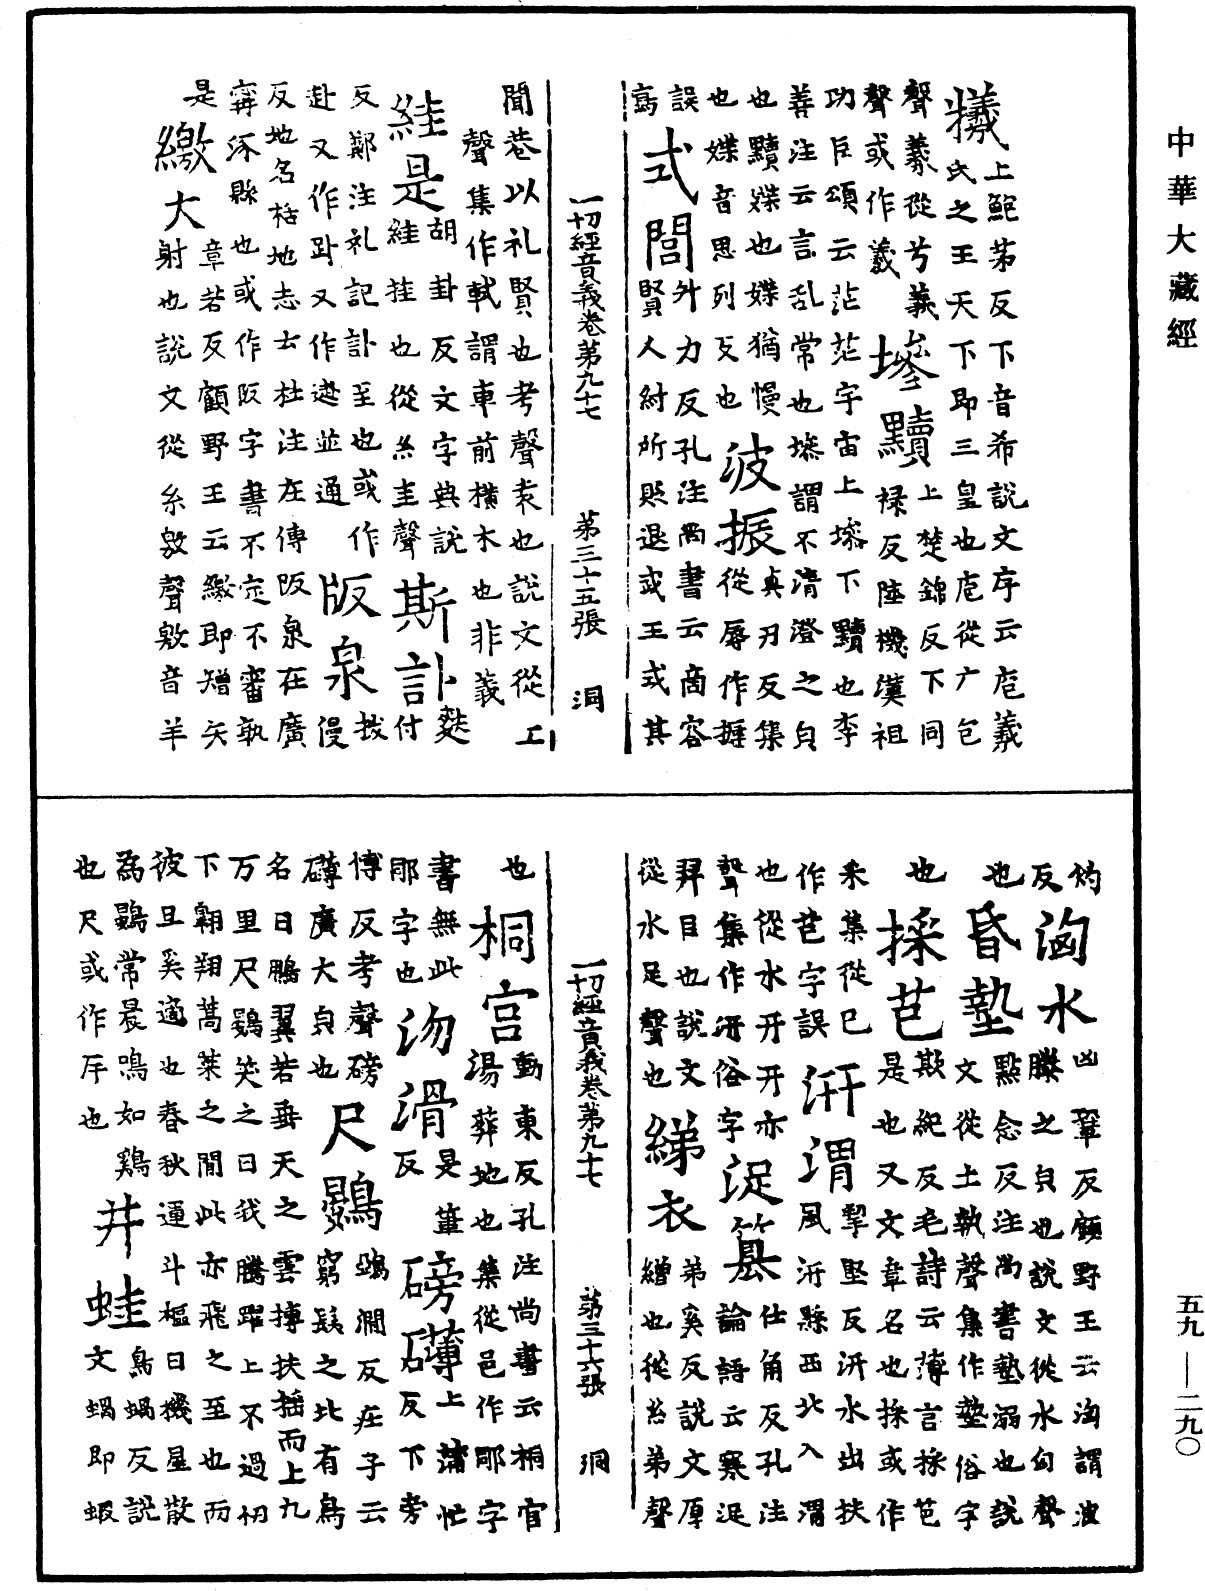 中華大藏經
犧上鮑茅反下音希說文序云庖羲
氏之王天下即三皇也庖從广包
聲羲從兮義
聲或作羲 墋黷上楚錦反下同
祿反陸機漢祖
功臣頌云茫茫宇宙上墋下黷也李
善注云言乱常也墋謂不清澄之皃
也黷媟也媟猶慢
也媟音思列反也 波振真刃反集
從辱作搙
誤 式閭外力反孔注尚書云商容
賢人紂所貶退或王式其
閭巷以礼賢也考聲表也說文從工
聲集作軾謂車前橫木也非義
絓是胡卦反文字典說
絓挂也從糸圭聲 斯訃麩付
反鄭注礼記訃至也或作
赴又作趴又作䞳並通 阪泉
反地名括地志云杜注左傳阪泉在廣
寗涿縣也或作阪字書不定不審孰
是 繳大章若反顧野王云繳即矰矢
射也說文從糸敫聲敫音羊
一切經音義卷第九十七 第三十五張 洞
灼
反 洶水凶鞏反顧野王云洶謂波
騰之皃也說文從水匈聲
也 昏墊點念反注尚書墊溺也說
文從土執聲集作墊俗字
也 採芑欺紀反毛詩云薄言採芑
是也又文章名也採或作
采集從已
作芑字誤 汧渭掔堅反汧水出扶
風汧縣西北入渭
也從水幵幵亦
聲集作汧俗字 浞篡仕角反孔注
論語云寒浞
羿目也說文
從水足聲也 綈衣弟奚反說文厚
繒也從糸弟聲
一切經音義卷第九十七 第三十六張 洞
也 桐宮動東反孔注尚書云桐宮
湯葬地也集從邑作䣑字
書無此
䣑字也 汤滑是筆
反 磅礡上滂忙
反下旁
博反考聲磅
礡廣大皃也 尺鷃鴳澗反庄子云
窮髮之北有鳥
名曰鵬翼若垂天之雲摶扶摇而上九
万里尺鷃笑之曰我騰躍上不過仞
下翱翔蒿萊之間此亦飛之至也而
彼且奚適也春秋運斗樞曰機星散
為鷃常晨鳴如鷄
也尺或作斥也 井蛙蝸反說
文蝸即蝦
五九——二九〇